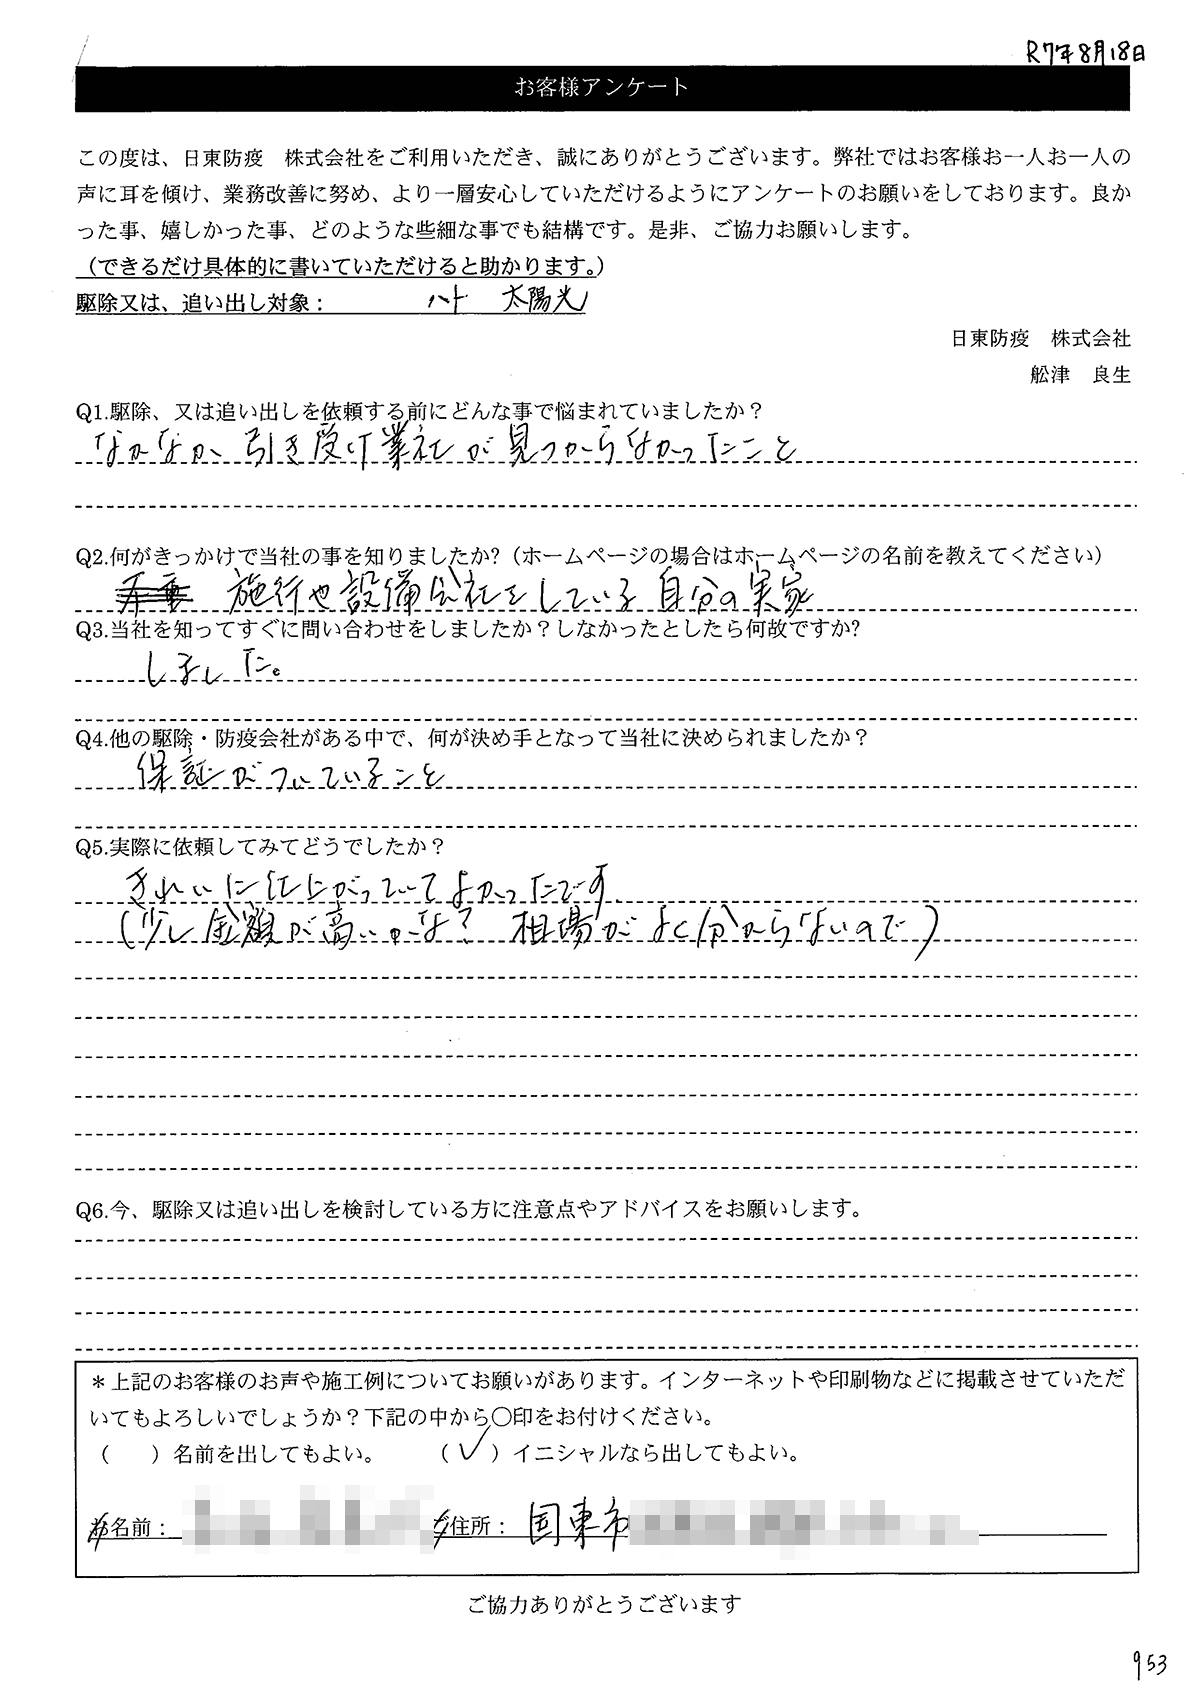 R7年8月18日
お客様アンケート
この度は、日東防疫　株式会社をご利用いただき、誠にありがとうございます。弊社ではお客様お一人お一人の
声に耳を傾け、業務改善に努め、より一層安心していただけるようにアンケートのお願いをしております。良か
った事、嬉しかった事、どのような些細な事でも結構です。是非、ご協力お願いします。
（できるだけ具体的に書いていただけると助かります。）
駆除又は、追い出し対象：　ハト　太陽光
日東防疫　株式会社
舩津　良生
Q1.駆除、又は追い出しを依頼する前にどんな事で悩まれていましたか？
なかなか引き受け業社が見つからなかったこと
Q2.何がきっかけで当社の事を知りましたか?（ホームページの場合はホームページの名前を教えてください）
施行や設備会社をしている自分の実家
Q3.当社を知ってすぐに問い合わせをしましたか？しなかったとしたら何故ですか?
しました。
Q4.他の駆除・防疫会社がある中で、何が決め手となって当社に決められましたか？
保証がついていること
Q5.実際に依頼してみてどうでしたか？
きれいに仕上がっていてよかったです
（少し金額が高いかな？　相場がよく分からないので）
Q6.今、駆除又は追い出しを検討している方に注意点やアドバイスをお願いします。
＊上記のお客様のお声や施工例についてお願いがあります。インターネットや印刷物などに掲載させていただ
いてもよろしいでしょうか？下記の中から○印をお付けください。
（　　）名前を出してもよい。　　（✓）イニシャルなら出してもよい。
お名前：　ご住所：国東市
ご協力ありがとうございます
953